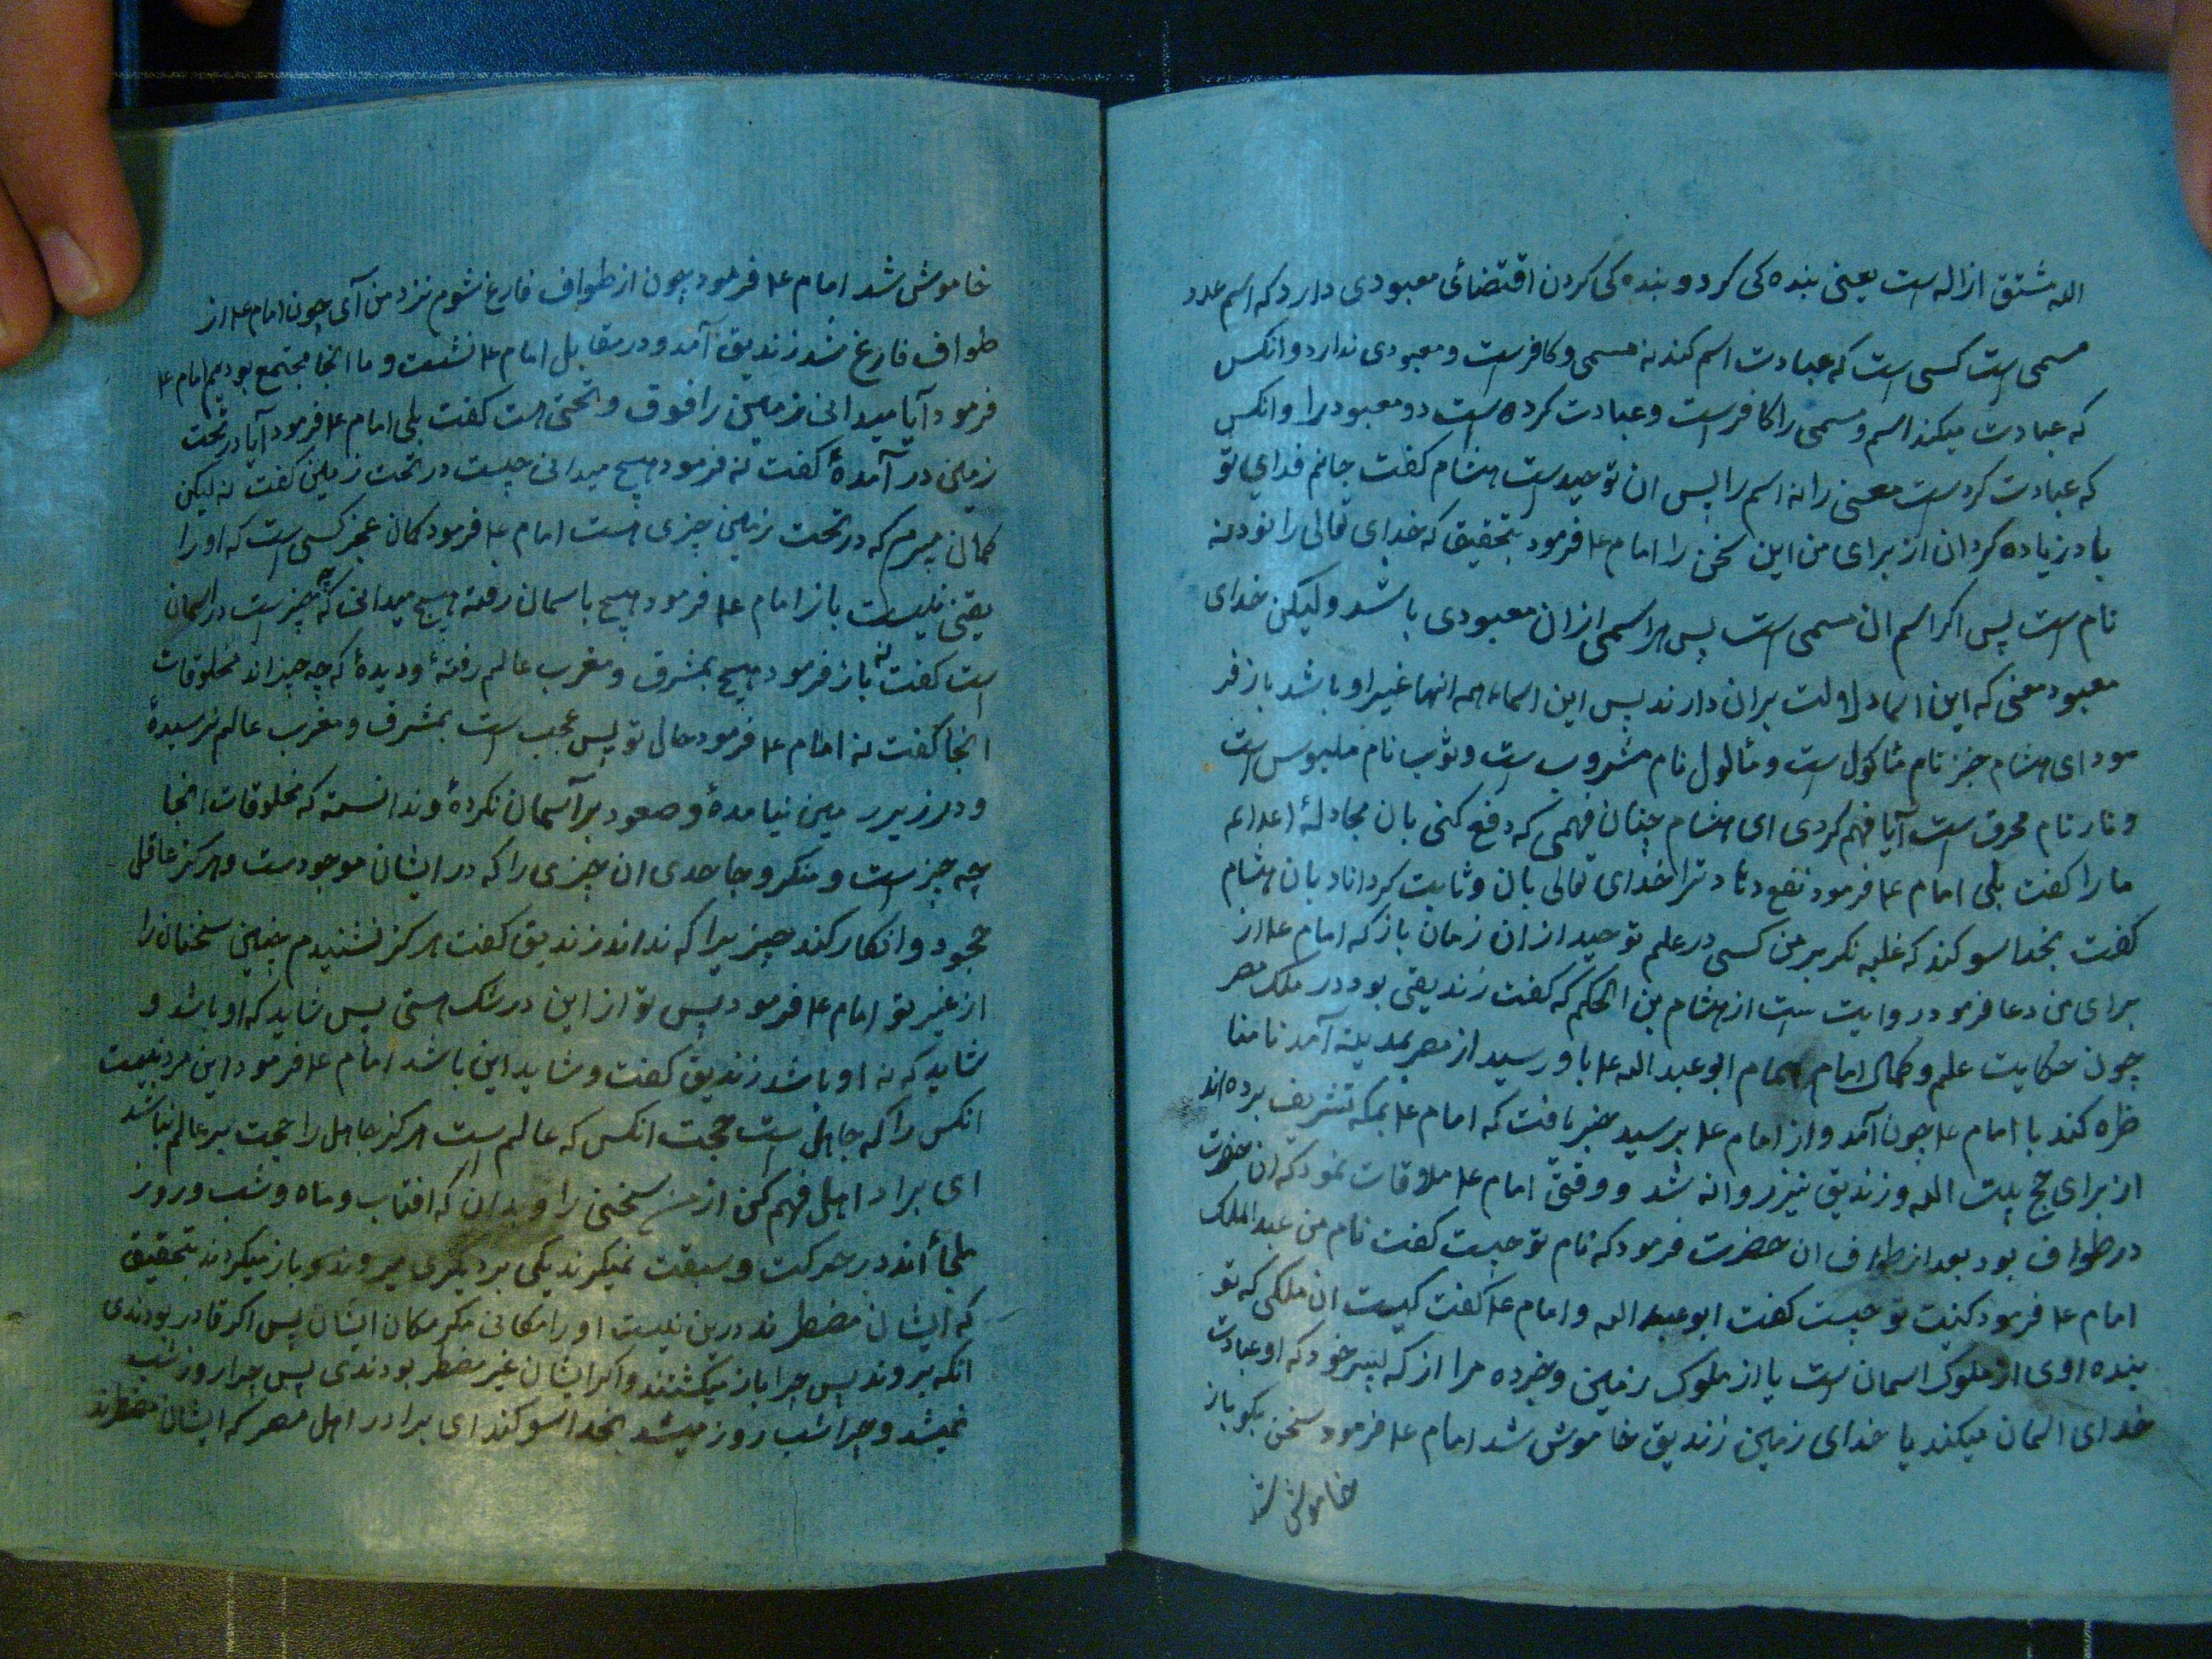 الله مشتق از اله است یعنی بنده کی کرد و بنده کی کردن اقتضائ معبودی دارد که اسم عدد
مسمی است کسی است که عبادت اسم کند نه مسمی و کافرست و معبودی ندارد و انکس
که عبادت میکند اسم و مسمی را کافرست و عبادت کرده است دو معبود را و انکس
که عبادت کردست معنی را نه اسم را پس ان توحیدست هشام کفت جانم فدای تو
باد زیاده کردان از برای من این سخن را امام ع م فرمود بتحقیق که خدای تعالی را نود نه
نام است پس اکر اسم ان مسمی است پس هر اسمی از ان معبودی باشد ولیکن خدای
معبود معنی که این اسما دلالت بران دارند پس این اسماء همه انها غیر او باشد باز فر
مود ای هشام خبز نام مأکول است و مأ لول نام مشروب ست و ثوب نام ملبوس است
و نار نام محرق است آیا فهم کردی ای هشام چنان فهمی که دفع کنی بان مجادلهٔ اعداء
ما را کفت بلی امام ع م فرمود نفع دهاد ترا خدای تعالی بان و ثابت کرداناد بان هشام
کفت بخدا سوکند که غلبه نکرد بر من کسی در علم توحید از ان زمان باز که امام ع م از
برای من دعا فرمود روایت ست از هشام بن الحکم که کفت زندیقی بود در ملک مصر
چون حکایت علم و کمال امام همام ابو عبد الله ع م باو رسید از مصر بمدینه آمد تا منا
ظره کند با امام ع م چون آمد و از امام ع م پرسید خبر یافت که امام ع م بمکه تشریف برده اند
از برای حج بیت الله و زندیق نیز روانه شد و وقتی امام ع م ملاقات نمود که ان حضرت
در طواف بود بعد از طواف ان حضرت فرمود که نام تو چیست کفت نام من عبد الملک
امام ع م فرمود کنیت تو چیست کفت ابو عبد الله و امام ع م کفت کیست ان ملکی که تو
بنده اوی از ملوک اسمان است یا از ملوک زمین و خبر ده مرا از که پسر خود که او عبادت
خدای اسمان میکند یا خدای زمین زندیق خاموش شد امام ع م فرمود سخن بکو باز
خاموش شد
خاموش شد امام ع م فرمود چون از طواف فارغ شوم نزد من آی چون امام ع م از
طواف فارغ شد زندیق آمد و در مقابل امام ع م نشست و ما انجا مجتمع بودیم امام ع م
فرمود آیا میدانی زمین را فوق و تحتی هست کفت بلی امام ع م فرمود آیا در تحت
زمین در آمدهٔ کفت نه فرمود هیچ میدانی چیست در تحت زمین کفت نه لیکن
کمان میبرم که در تحت زمین چیزی هست امام ع م فرمود کمان عجز کسی است که او را
یقینی نیست باز امام ع م فرمود هیچ باسمان رفته هیچ میدانی که چه چیزست در اسمان
است کفت نه باز فرمود هیچ بمشرق و مغرب عالم رفتهٔ و دیدهٔ که چه چیز اند مخلوقات
انجا کفت نه امام ع م فرمود حال تو پس عجب است بمشرق و مغرب عالم نرسیدهٔ
و در زیر زمین نیامدهٔ و صعود بر آسمان نکردهٔ و ندانستهٔ که مخلوقات انجا
چه چیز است و منکر و جاحدی ان چیزی را که در ایشان موجودست و هرکز عاقلی
جحود و انکار کند چیزیرا که نداند زندیق کفت هرکز نشنیدم چنین سخنان را
از غیر تو امام ع م فرمود پس تو از این در شک هستی پس شاید که او باشد و
شاید که نه او باشد زندیق کفت و شاید این باشد امام ع م فرمود این مرد نیست
انکس را که جاهل است حجت انکس که عالم است هرکز جاهل را حجت بر عالم نباشد
ای برادر اهل فهم کن از من سخنی را و بدان که افتاب و ماه و شب و روز
ملجأ اند در حرکت و سبقت نمیکیرند یکی بر دیکری میروند و باز میکردند بتحقیق
که ایشان مضطرند درین نیست او را مکانی مکر مکان ایشان پس اکر قادر بودندی
انکه بروند پس چرا باز میکشتند و اکر ایشان غیر مضطر بودندی پس چرا روز شب
نمیشد و چرا شب روز میشد بخدا سوکند ای برادر اهل مصر که ایشان مضطرند